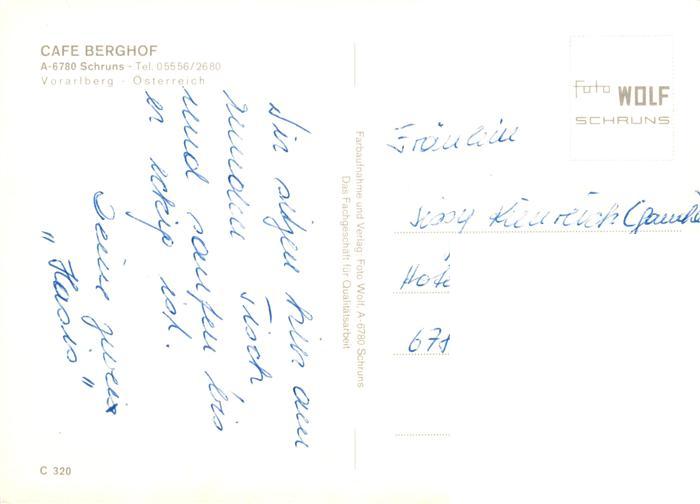 CAFE BERGHOF
A-6780 Schruns - Tel. 05556/2680
Vorarlberg - Österreich
Wir sitzen hier am
runden Tisch
und saufen bis
er eckig ist.
Deine zwei
"Hasis"
C 320
Farbaufnahme und Verlag: Foto Wolf, A-6780 Schruns
Das Fachgeschäft für Qualitätsarbeit
foto WOLF
SCHRUNS
Fräulein
Sissy
Hote
67